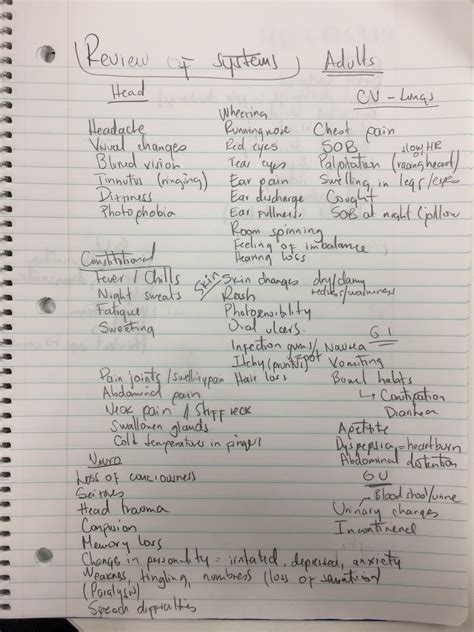 Review of systems Adults
Head
CV - Lungs
Headache
Visual changes
Blured vision
Tinnutus (ringing)
Dizzness
Photophobia
Wheezing
Running nose
Red eyes
Tear eyes
Ear pain
Ear discharge
Ear fullness
Room spinning
Feeling of imbalance
Hearing loss
Chest pain
SOB slow HR
Palpitation (racing heart)
Swelling in legs/eyes
Cought
SOB at night (pillow
Constitutional
Fever / Chills
Night sweats
Fatigue
Sweeting
Skin
Skin changes dry/clamy
redness/warmness
Rash
Photosensibility
Oral ulcers
Infection gums/
Itchy (pruritis) spot
Hair loss
GI
Nausea
Vomiting
Bowel habits
↳ Constipation
Diarrhea
Apetite
Dyspepsia = heartburn
Abdominal distention
Pain joints / swelling pain
Abdominal pain
Neck pain / Stiff neck
Swallowen glands
Cold temperature in finger
GU
Blood stool/urine
Urinary changes
Incontinence
Neuro
Loss of conciousness
Seizures
Head trauma
Confusion
Memory loss
Change in personality = irritated, depressed, anxiety
Weakness, tingling, numbness (loss of sensation)
(Paralysis)
Speech difficulties